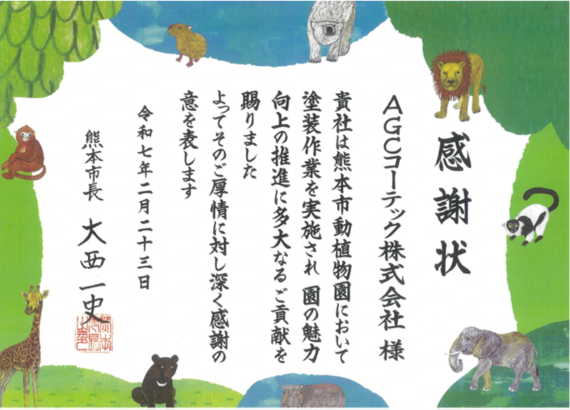 感謝状
AGCコーテック株式会社 様
貴社は熊本市動植物園において
塗装作業を実施され 園の魅力
向上の推進に多大なるご貢献を
賜りました
よってそのご厚情に対し深く感謝の
意を表します
令和七年二月二十三日
熊本市長 大西一史